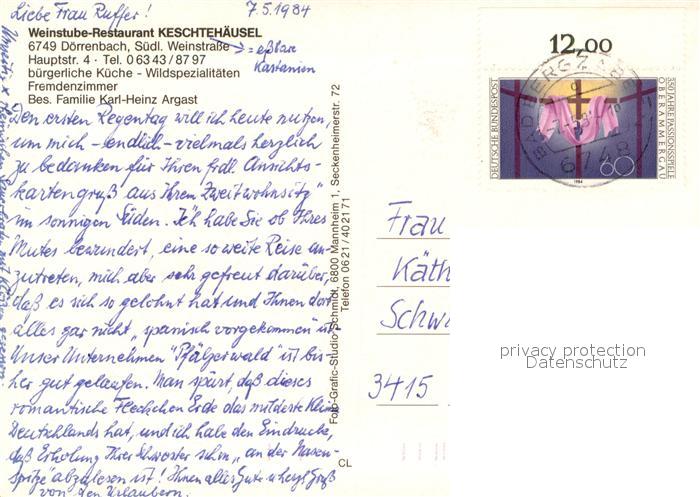 Liebe Frau Ruffer!
7.5.1984
Weinstube-Restaurant KESCHTEHÄUSEL
6749 Dörrenbach, Südl. Weinstraße
Hauptstr. 4 · Tel. 0 63 43 / 87 97
bürgerliche Küche - Wildspezialitäten
Fremdenzimmer
Bes. Familie Karl-Heinz Argast
= eßbare
Kastanien
Den ersten Regentag will ich heute nutzen,
um mich – endlich – vielmals herzlich
zu bedanken für Ihren frdl. Ansichts-
kartengruß "aus Ihrem Zweitwohnsitz"
im sonnigen Süden. Ich habe Sie ob Ihres
Mutes bewundert, eine so weite Reise an-
zutreten, mich aber sehr gefreut darüber,
daß es sich so gelohnt hat und Ihnen dort
alles gar nicht "spanisch vorgekommen" ist.
Unser Unternehmen "Pfälzerwald" ist bis-
her gut gelaufen. Man spürt, daß dieses
romantische Fleckchen Erde das mildeste Klima
Deutschlands hat, und ich habe den Eindruck,
daß Erholung Ihrer Schwester schon "an der Nasen-
spitze" abzulesen ist! Ihnen alles Gute u. herzl. Gruß
von den Urlaubern.
Foto-Grafic-Studio Schmidt, 6800 Mannheim 1, Seckenheimerstr. 72
Telefon 06 21 / 40 21 71
CL
12,00
DEUTSCHE BUNDESPOST
350 JAHRE PASSIONSSPIELE
OBERAMMERGAU
60
1984
BAD BERGZABERN
6748
Frau
Käth
Schw
3415
privacy protection
Datenschutz